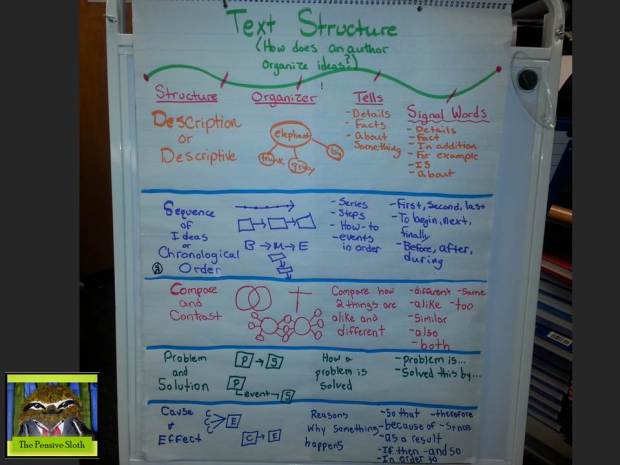 Text Structure
(How does an author
organize ideas?)
Structure Organizer Tells Signal Words
Description
or
Descriptive
elephant
trunk gray big
- Details
Facts
- about
Something
- Details
- Fact
- In addition
- For example
- IS
- about
Sequence
of
Ideas
or
Chronological
Order
B → M → E
- Series
- Steps
- How-to
- events
in order
- First, Second, last
- To begin, next,
finally
- Before, after,
during
Compare
and
Contrast
Compare how
2 things are
alike and
different
- different - Same
- alike - too
- Similar
- also
- both
Problem
and
Solution
P → S
P
event → S
How a
problem is
solved
- problem is...
- Solved this by...
Cause
&
Effect
C
C E
C
C → E
Reasons
Why something
happens
- So that - therefore
- because of - Since
- as a result
- If then - and so
- In order to
The Pensive Sloth